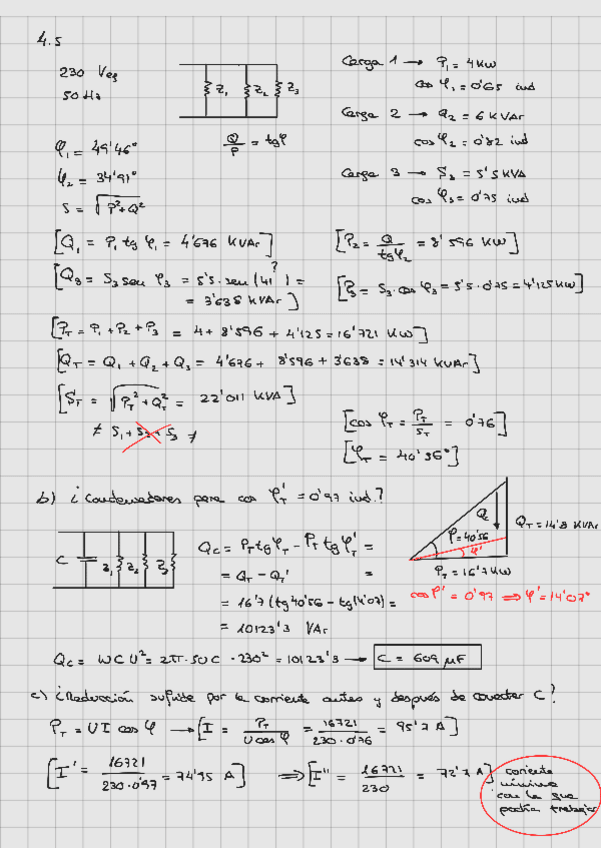 4.5
230 Veg
50 Hz
Z₁ Z₂ Z₃
Carga 1 → P₁ = 4 KW
cos φ₁ = 0'65 ind
Carga 2 → Q₂ = 6 KVAr
cos φ₂ = 0'82 ind
Carga 3 → S₃ = 5'5 KVA
cos φ₃ = 0'75 ind
Q/P = tg φ
φ₁ = 49'46°
φ₂ = 34'91°
S = √(P²+Q²)
[Q₁ = P₁ tg φ₁ = 4'676 KVAr]
[P₂ = Q/tgφ₂ = 8'596 KW]
[Q₃ = S₃ sen φ₃ = 5'5 · sen (41?) =
= 3'638 KVAr]
[P₃ = S₃ · cos φ₃ = 5'5 · 0'75 = 4'125 KW]
[P_T = P₁ + P₂ + P₃ = 4 + 8'596 + 4'125 = 16'721 KW]
[Q_T = Q₁ + Q₂ + Q₃ = 4'676 + 8'596 + 3'638 = 14'314 KVAr]
[S_T = √(P_T² + Q_T²) = 22'011 KVA]
≠ S₁ + S₂ + S₃ ≠
[cos φ_T = P_T/S_T = 0'76]
[φ_T = 40'56°]
b) ¿Condensadores para cos φ'_T = 0'97 ind.?
C Z₁ Z₂ Z₃
Q_C = P_T tg φ_T − P_T tg φ'_T =
= Q_T − Q_T' =
= 16'7 (tg 40'56 − tg 14'07) =
= 10123'3 VAr
Q_C
φ = 40'56
φ'
Q_T = 14'8 KVAr
P_T = 16'7 KW
cos φ' = 0'97 ⇒ φ' = 14'07°
Q_C = WCU² = 2π · 50 C · 230² = 10123'3 → C = 609 μF
c) ¿Reducción sufrida por la corriente antes y después de conectar C?
P_T = UI cos φ → [I = P_T/(U cos φ) = 16721/(230 · 0'76) = 95'7 A]
[I' = 16721/(230 · 0'97) = 74'95 A] ⇒ [I'' = 16721/230 = 72'7 A]
corriente
mínima
con la que
podría trabajar